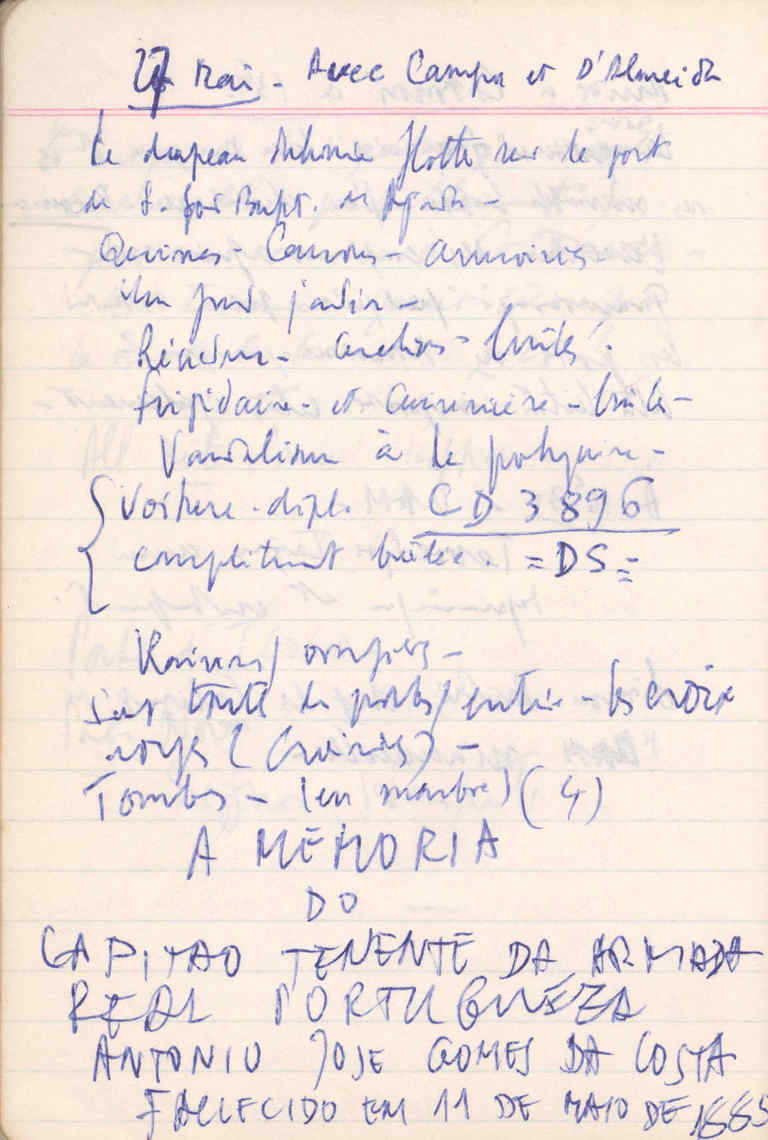 27 Mai - Avec Campa et D'Almeida
Le drapeau dahomeen flotte sur le fort
de S. Joao Bapt. de Ajuda -
Ruines - Canons - armoiries -
jardin -
Résidence - brûlés.
frigidaire - et cuisinière - brûlés -
Vandalisme à la
Voiture - dipl. CD 3896
complètement brûlée. = DS =
Sur les croix
rouges (croisés) -
Tombes - (en marbre) (4)
A MEMORIA
DO
CAPITAO TENENTE DA ARMADA
REAL PORTUGUEZA
ANTONIO JOSE GOMES DA COSTA
FALLECIDO EM 11 DE MAIO DE 1885